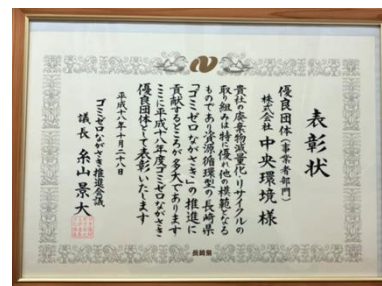 表彰状
優良団体（事業者部門）
株式会社 中央環境 様
貴社の廃棄物減量化・リサイクルの
取り組みは特に優れ他の模範となる
ものであり資源循環型の長崎県
「ゴミゼロながさき」の推進に
貢献するところが多大であります
ここに平成十八年度ゴミゼロながさき
優良団体として表彰いたします
平成十八年十月二十八日
ゴミゼロながさき推進会議
議長 糸山景大
長崎県